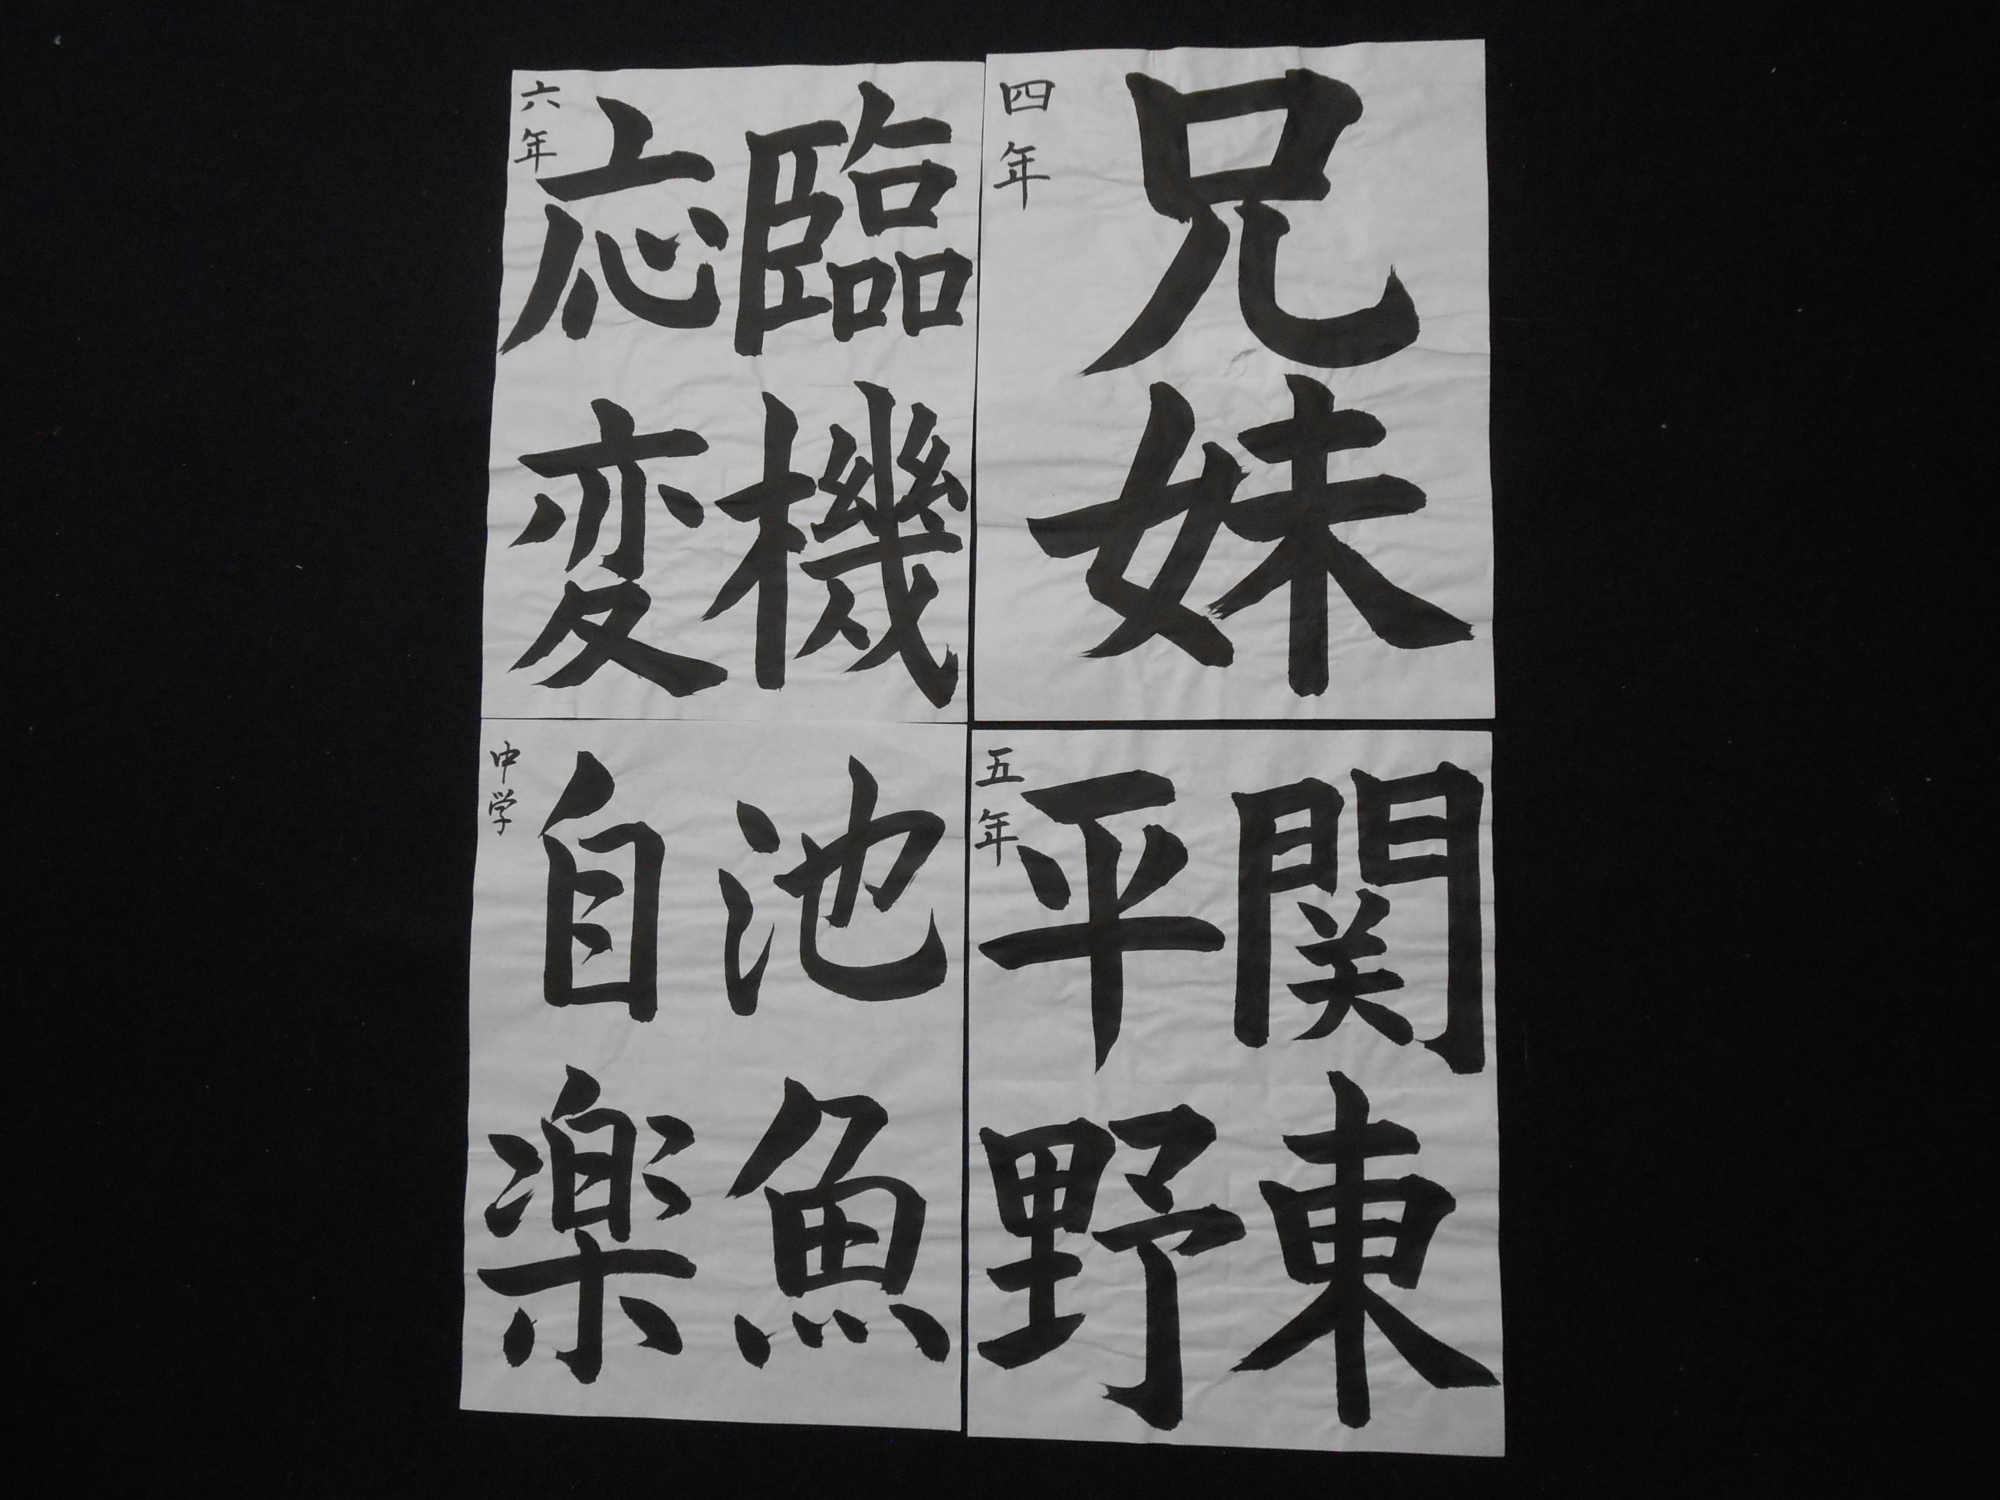 兄妹
四年
関東
平野
五年
臨機
応変
六年
池魚
自楽
中学